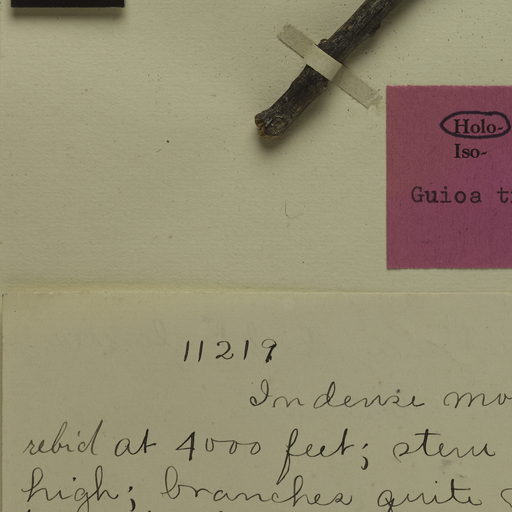 Holo-
Iso-
Guioa
11219
In dense
at 4000 feet; stem
high; branches quite